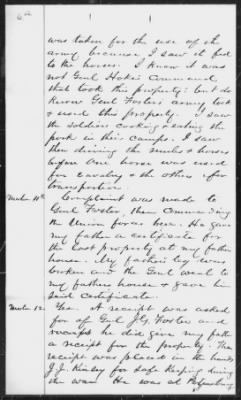 6th
was taken for the use of the
army because I saw it fed
to the horses. I know it was
not Genl Hoke's Command
that took this property: but do
know Genl Foster's army took
& used this property. I saw
the soldiers cooking & eating the
pork in their camps. I saw
them driving the mules & horses
before One horse was used
for cavalry & the others for
transportion.
Number 11th Complaint was made to
Genl Foster, then Commanding
the Union forces here. He gave
my father a certificate for
the lost property at my father
house. My father's leg was
broken and the Genl went to
my fathers house & gave him
said certificate.
Number 12. Yes. A receipt was asked
for of Genl J.G. Foster and
receipt he did give my father
a receipt for the property. The
receipt was placed in the hands
J.J. Kinsey for safe keeping during
the war. He was at Petersburg